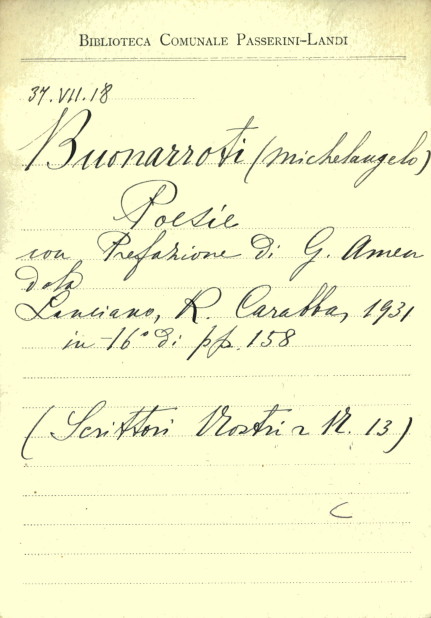 BIBLIOTECA COMUNALE PASSERINI-LANDI
37.VII.18
Buonarroti (Michelangelo)
Poesie
con Prefazione di G. Amen
dola
Lanciano, R. Carabba, 1931
in-16° di pp. 158
(Scrittori Nostri N. 13)
C